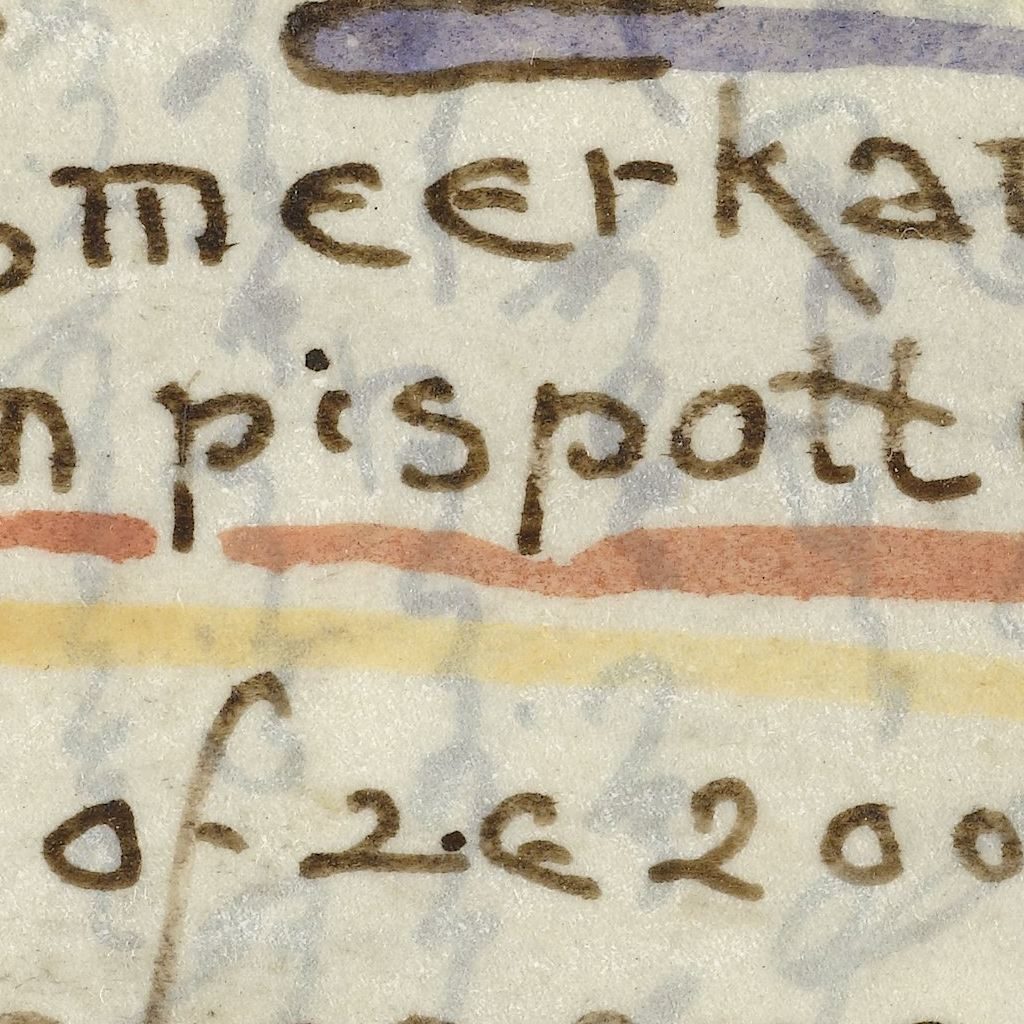 meerkat
n pispott
of 2.e 200